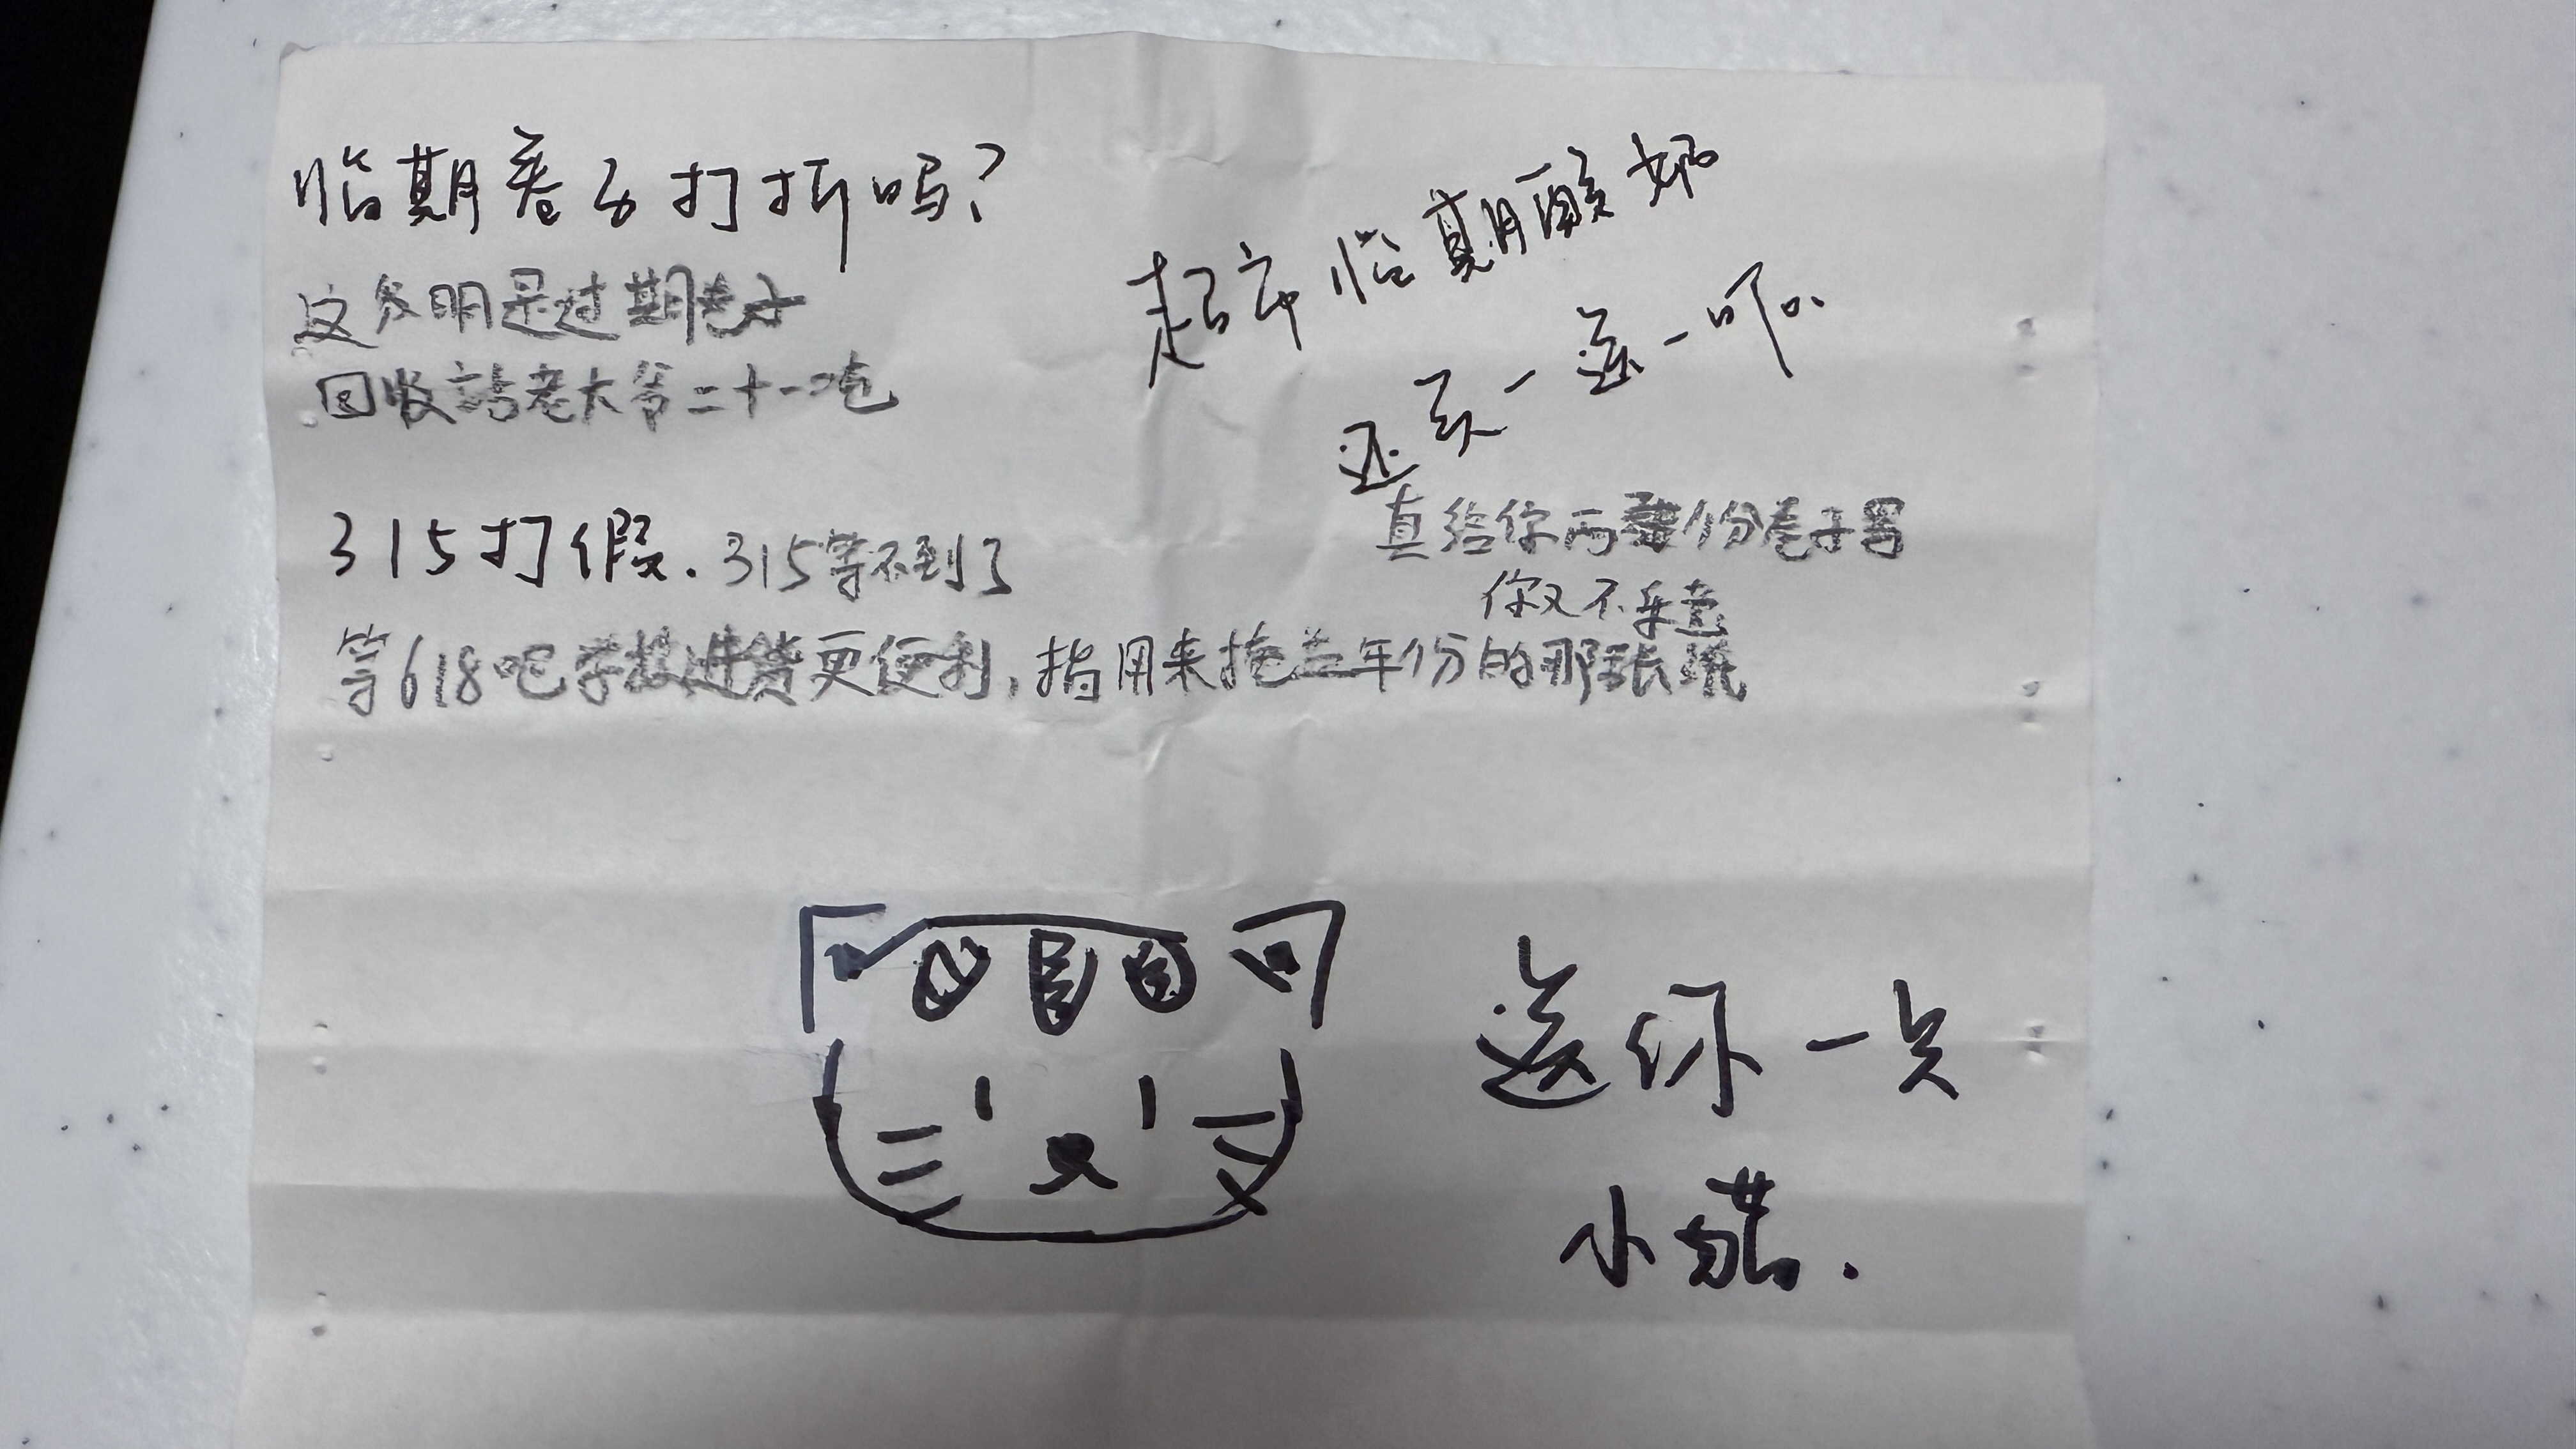 临期卷子打折吗？
这分明是过期卷子
回收站老大爷二十一吨
超市临期酸奶
还买一送一呢。
315打假．315等不到了
真给你两份卷子写
你又不乐意
等618吧学校进货更便利，指用来掩盖年份的那张纸
送你一只
小猫．